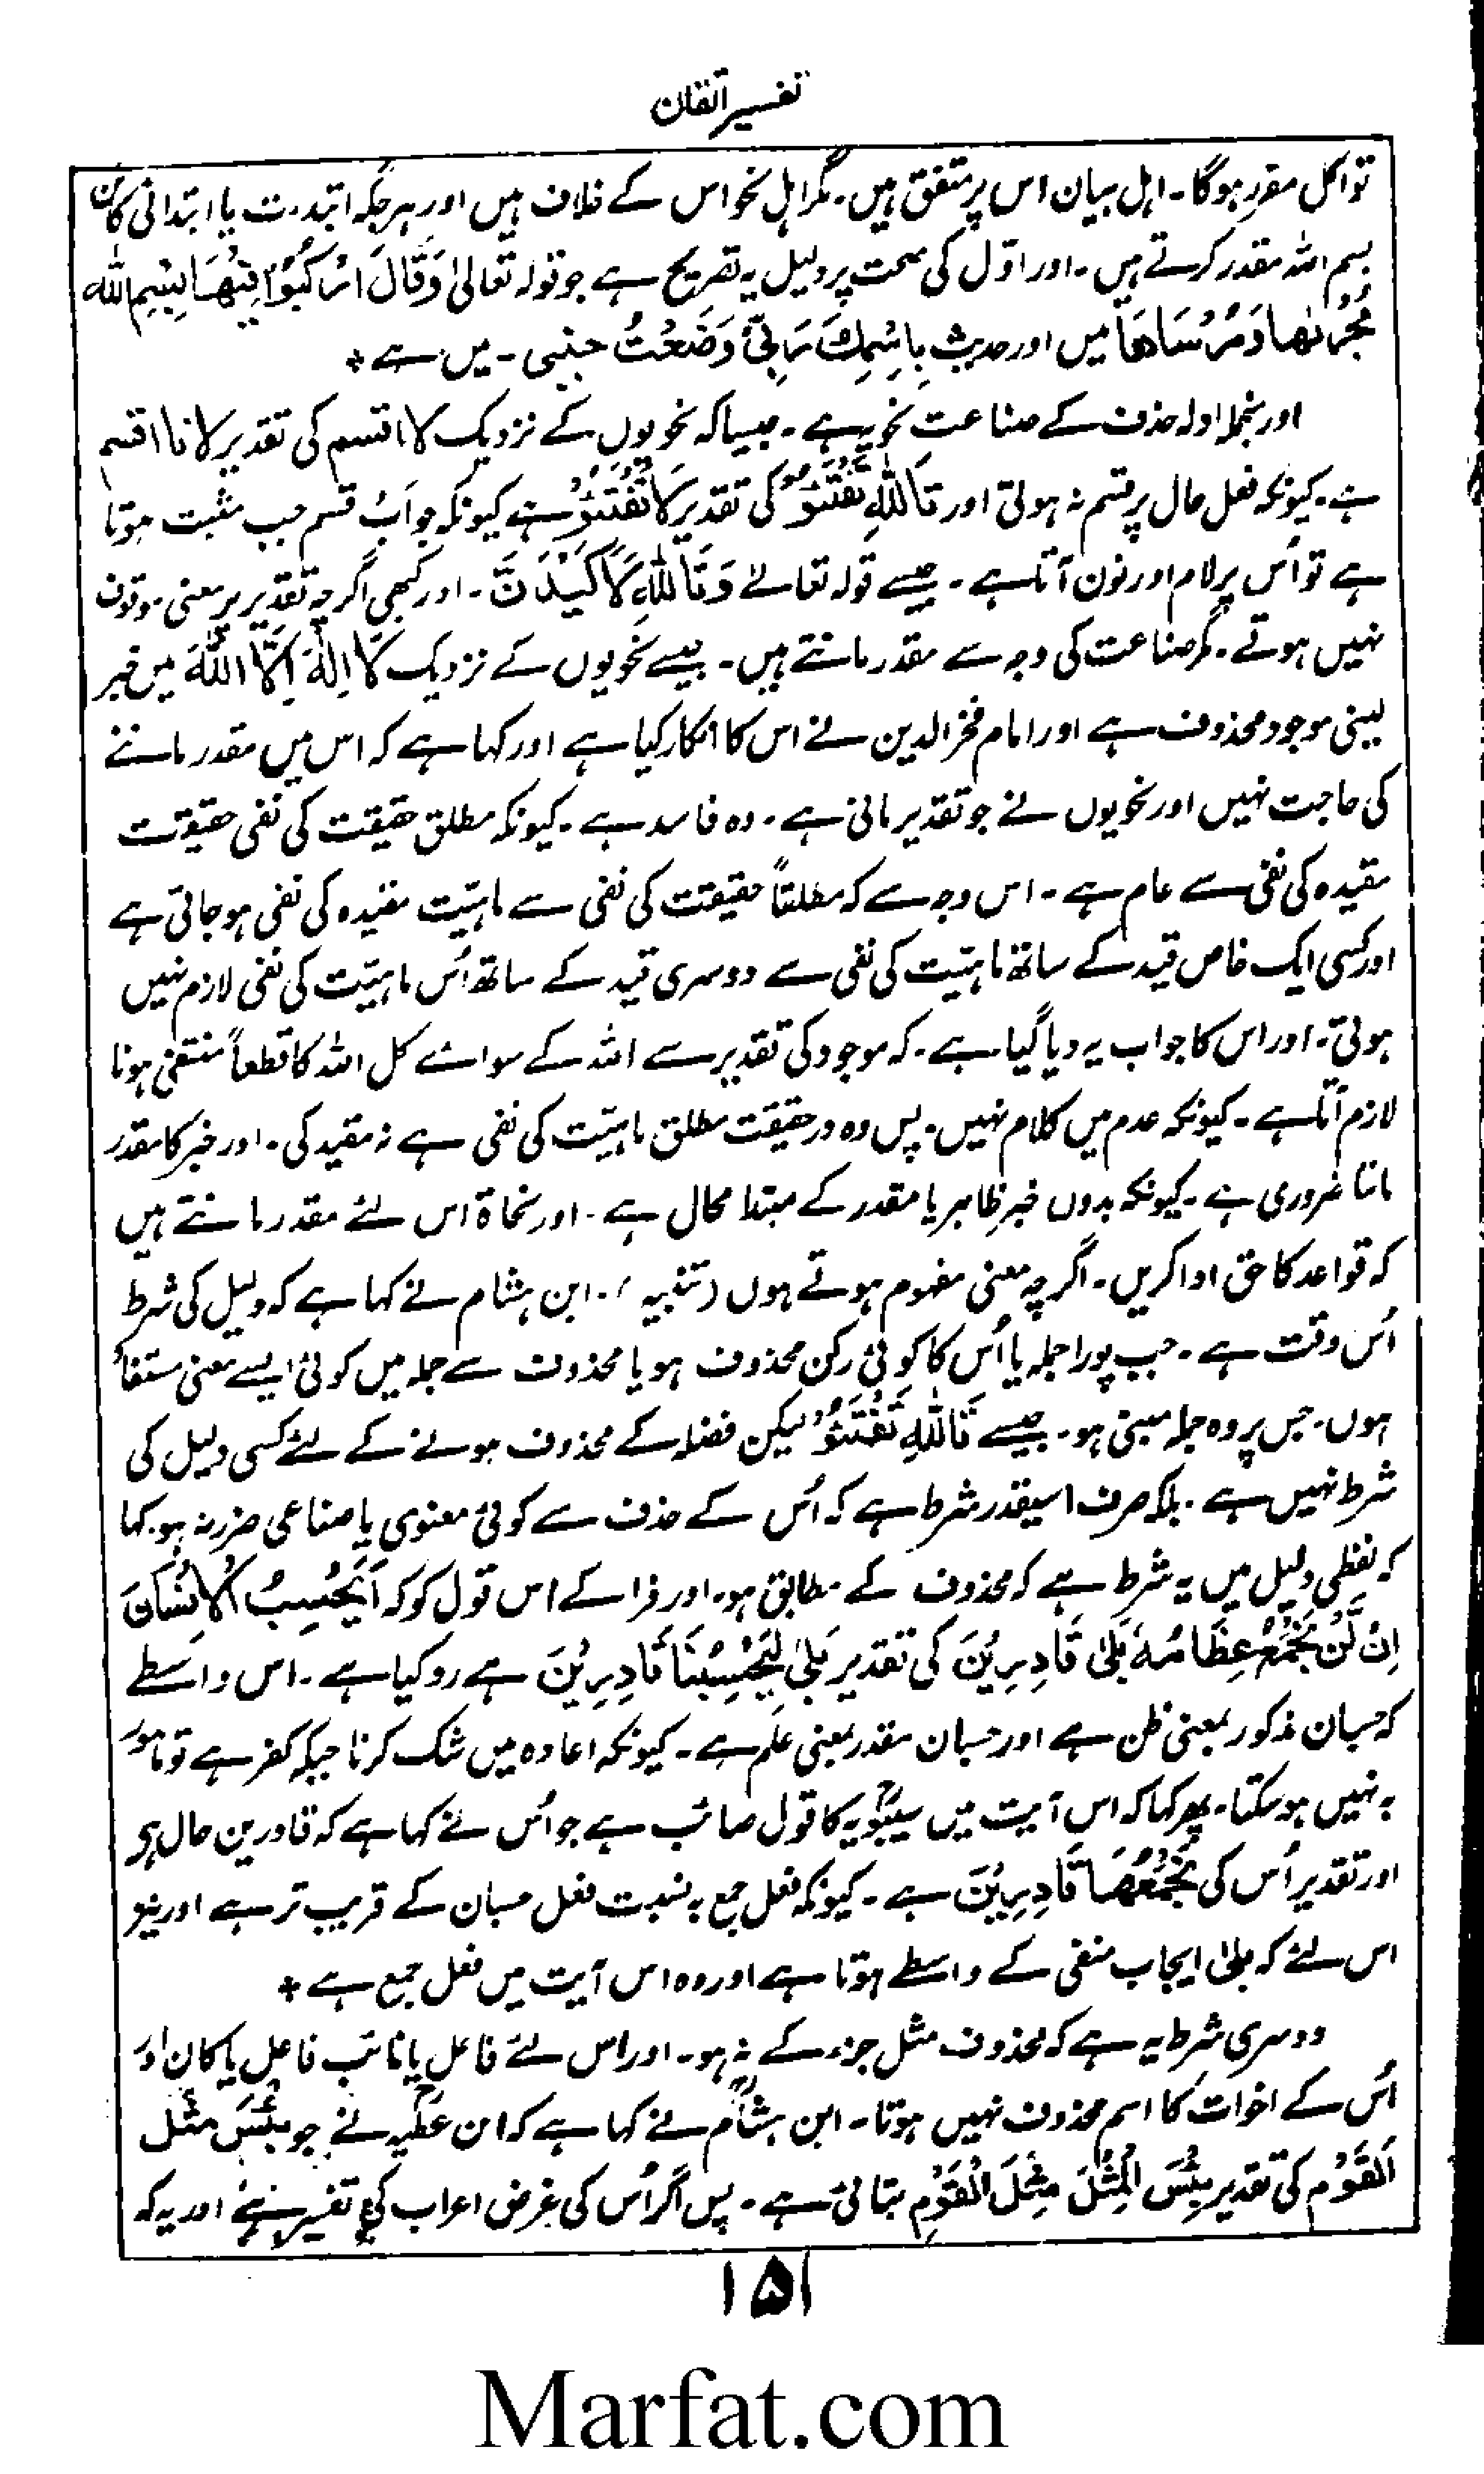 تفسیر اتقان
تو اکل مقرر ہوگا۔ اہل بیان اس پر متفق ہیں۔ مگر اہل نحو اس کے خلاف ہیں اور ہر جگہ ابتدءت یا ابتدائی کائن
بسم اللہ مقدر کرتے ہیں۔ اور اوّل کی صحت پر دلیل یہ تصریح ہے جو قولہ تعالیٰ وَقَالَ ارْكَبُوْا فِيْهَا بِسْمِ اللہ
مَجْرٖىهَا وَمُرْسَاهَا میں اور حدیث بِاسْمِكَ رَبِّیْ وَضَعْتُ جنبی۔ میں ہے *
اور منجملہ ادلہ حذف کے صناعتِ نحویہ ہے۔ جیسا کہ نحویوں کے نزدیک لا اقسم کی تقدیر لانا اقسم
ہے۔ کیونکہ فعل حال پر قسم نہ ہوتی اور تَاللّٰهِ تَفْتَئُوْ کی تقدیر لَا تَفْتَئُوْ ہے کیونکہ جوابُ قسم جب مثبت ہوتا
ہے تو اُس پر لام اور نون آتا ہے۔ جیسے قولہ تعالےٰ وَتَاللّٰهِ لَاَكِيْدَنَّ۔ اور کبھی اگرچہ تقدیر پر معنی موقوف
نہیں ہوتے۔ مگر صناعت کی وجہ سے مقدر مانتے ہیں۔ جیسے نحویوں کے نزدیک لَا اِلٰهَ اِلَّا اللّٰهَ میں خبر
یعنی موجود محذوف ہے اور امام فخر الدین نے اس کا انکار کیا ہے اور کہا ہے کہ اس میں مقدر ماننے
کی حاجت نہیں اور نحویوں نے جو تقدیر مانی ہے۔ وہ فاسد ہے۔ کیونکہ مطلق حقیقت کی نفی حقیقت
مقیدہ کی نفی سے عام ہے۔ اس وجہ سے کہ مطلقاً حقیقت کی نفی سے ماہیّت مقیدہ کی نفی ہو جاتی ہے
اور کسی ایک خاص قید کے ساتھ ماہیّت کی نفی سے دوسری قید کے ساتھ اُس ماہیّت کی نفی لازم نہیں
ہوتی۔ اور اس کا جواب یہ دیا گیا ہے۔ کہ موجود کی تقدیر سے اللہ کے سوائے کل اللہ کا قطعاً منتفی ہونا
لازم آتا ہے۔ کیونکہ عدم میں کلام نہیں۔ پس وہ درحقیقت مطلق ماہیّت کی نفی ہے نہ مقید کی۔ اور خبر کا مقدر
ماننا ضروری ہے۔ کیونکہ بدوں خبر ظاہر یا مقدر کے مبتدا محال ہے۔ اور نحاۃ اس لئے مقدر مانتے ہیں
کہ قواعد کا حق ادا کریں۔ اگرچہ معنی مفہوم ہوتے ہوں (تنبیہ)۔ ابن ہشام نے کہا ہے کہ دلیل کی شرط
اُس وقت ہے۔ جب پورا جملہ یا اُس کا کوئی رکن محذوف ہو یا محذوف سے جملہ میں کوئی ایسے معنی مستفاد
ہوں۔ جس پر وہ جملہ مبنی ہو۔ جیسے تَاللّٰهِ تَفْتَئُوْ لیکن فضلہ کے محذوف ہونے کے لئے کسی دلیل کی
شرط نہیں ہے۔ بلکہ صرف اسیقدر شرط ہے کہ اُس کے حذف سے کوئی معنوی یا صناعی ضرر نہ ہو۔ کہا
کہ لفظی دلیل میں یہ شرط ہے کہ محذوف کے مطابق ہو۔ اور فرا کے اس قول کو کہ اَيَحْسِبُ الْاِنْسَانَ
اِنْ لَّنْ نَجْمَعَ عِظَامَهٗ بَلٰى قَادِرِيْنَ کی تقدیر بَلٰى لِيَحْسِبْنَا قَادِرِيْنَ ہے رد کیا ہے۔ اس واسطے
کہ حسبان مذکور بمعنی ظن ہے اور حسبان مقدر بمعنی علم ہے۔ کیونکہ اعادہ میں شک کرنا جبکہ کفر ہے تو مامور
بہ نہیں ہو سکتا۔ پھر کہا کہ اس آیت میں سیبویہ کا قول صائب ہے جو اُس نے کہا ہے کہ قادرین حال ہے
اور تقدیر اُس کی نَجْمَعُهَا قَادِرِيْنَ ہے۔ کیونکہ فعل جمع بہ نسبت فعل حسبان کے قریب تر ہے اور نیز
اس لئے کہ بلیٰ ایجاب منفی کے واسطے ہوتا ہے اور وہ اس آیت میں فعل جمع ہے *
دوسری شرط یہ ہے کہ محذوف مثل جزء کے نہ ہو۔ اور اس لئے فاعل یا نائب فاعل یا کان اور
اُس کے اخوات کا اسم محذوف نہیں ہوتا۔ ابن ہشام نے کہا ہے کہ ابن عطیہ نے جو بِئْسَ مثل
اَلْقَوْم کی تقدیر بِئْسَ الْمِثْلَ مِثْلَ الْقَوْمِ بتائی ہے۔ پس اگر اُس کی غرض اعراب کی تفسیر ہے اور یہ کہ
۱۵۱
Marfat.com